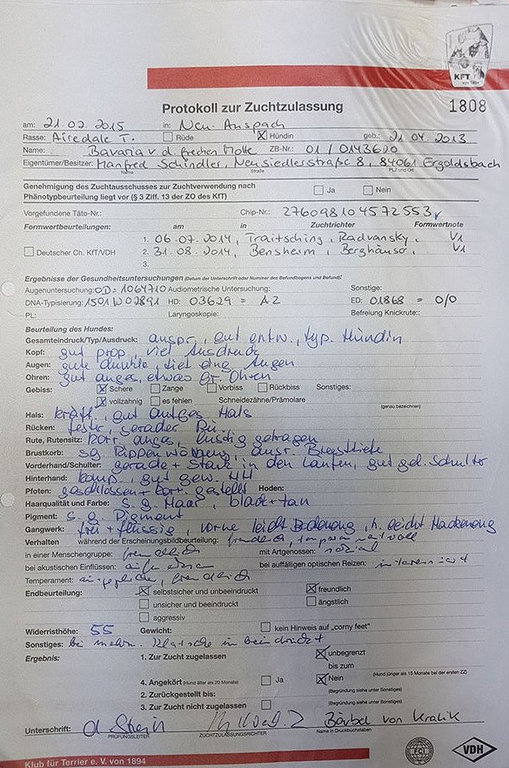 KFT
von 1894
Protokoll zur Zuchtzulassung 1808
am: 21 02. 2015 in: Neu-Anspach
Rasse: Airedale T. Rüde Hündin geb.: 21 04 2013
Name: Bavaria v. d. frechen Motte ZB-Nr.: 01/0143620
Eigentümer/Besitzer: Manfred Schindler, Neusiedlerstraße 8, 84061 Ergoldsbach
Name Straße PLZ und Ort
Genehmigung des Zuchtausschusses zur Zuchtverwendung nach
Phänotypbeurteilung liegt vor (§ 3 Ziff. 13 der ZO des KfT) Ja Nein
Vorgefundene Täto-Nr.: Chip-Nr.: 276098104572553
Formwertbeurteilungen: am in Zuchtrichter Formwertnote
1. 06.07.2014, Traitsching, Radvansky, V1
Deutscher Ch. KfT/VDH 2. 31.08.2014, Bensheim, Berghäuser, V1
3.
Ergebnisse der Gesundheitsuntersuchungen (Datum der Untersuchung oder Nummer des Befundbogens und Befund)
Augenuntersuchung: OD: 1064710 Audiometrische Untersuchung: Sonstige:
DNA-Typisierung: 1501W02891 HD: 03629 = A2 ED: 01868 = 0/0
PL: Laryngoskopie: Befreiung Knickrute:
Beurteilung des Hundes:
Gesamteindruck/Typ/Ausdruck: anspr., gut entw., typ. Hündin
Kopf: gut prop., viel Ausdruck
Augen: gute dunkle, tief Augen
Ohren: gut anges, etwas gr. Ohren
Gebiss: Schere Zange Vorbiss Rückbiss Sonstiges:
vollzahnig es fehlen Schneidezähne/Prämolare
(genau bezeichnen)
Hals: kräft., gut aufges Hals
Rücken: fester, gerader Rü
Rute, Rutensitz: korr anges, lustig getragen
Brustkorb: sg Rippenwölbung, ausr. Brusttiefe
Vorderhand/Schulter: gerade + Stark in den Läufen, gut gel. Schulter
Hinterhand: gut gew. HH
Pfoten: geschlossen + korr. gestellt Hoden:
Haarqualität und Farbe: s. g. Haar, black + tan
Pigment: s. g. Pigment
Gangwerk: frei + flüssig, vorne leicht Bodeneng, h. leicht Hackeneng
Verhalten während der Erscheinungsbildbeurteilung: freundlich, temperamentvoll
in einer Menschengruppe: freundlich mit Artgenossen: sozial
bei akustischen Einflüssen: aufmerksam bei auffälligen optischen Reizen: interessiert
Temperament: ausgeglichen, freundlich
Endbeurteilung: selbstsicher und unbeeindruckt freundlich
unsicher und beeindruckt ängstlich
aggressiv
Widerristhöhe: 55 Gewicht: kein Hinweis auf „corny feet“
Sonstiges: Bei mehrm. Klatsche unbeeindruckt
Ergebnis: 1. Zur Zucht zugelassen unbegrenzt
bis zum
(Hund jünger als 15 Monate bei der ersten ZZ)
4. Angekört (Hund älter als 20 Monate) Ja Nein
2. Zurückgestellt bis: (Begründung siehe unter Sonstiges)
3. Zur Zucht nicht zugelassen (Begründung siehe unter Sonstiges)
Unterschrift: Bärbel von Kralik
PRÜFUNGSLEITER ZUCHTZULASSUNGSRICHTER Name in Druckbuchstaben
Klub für Terrier e. V. von 1894
FCI
VDH